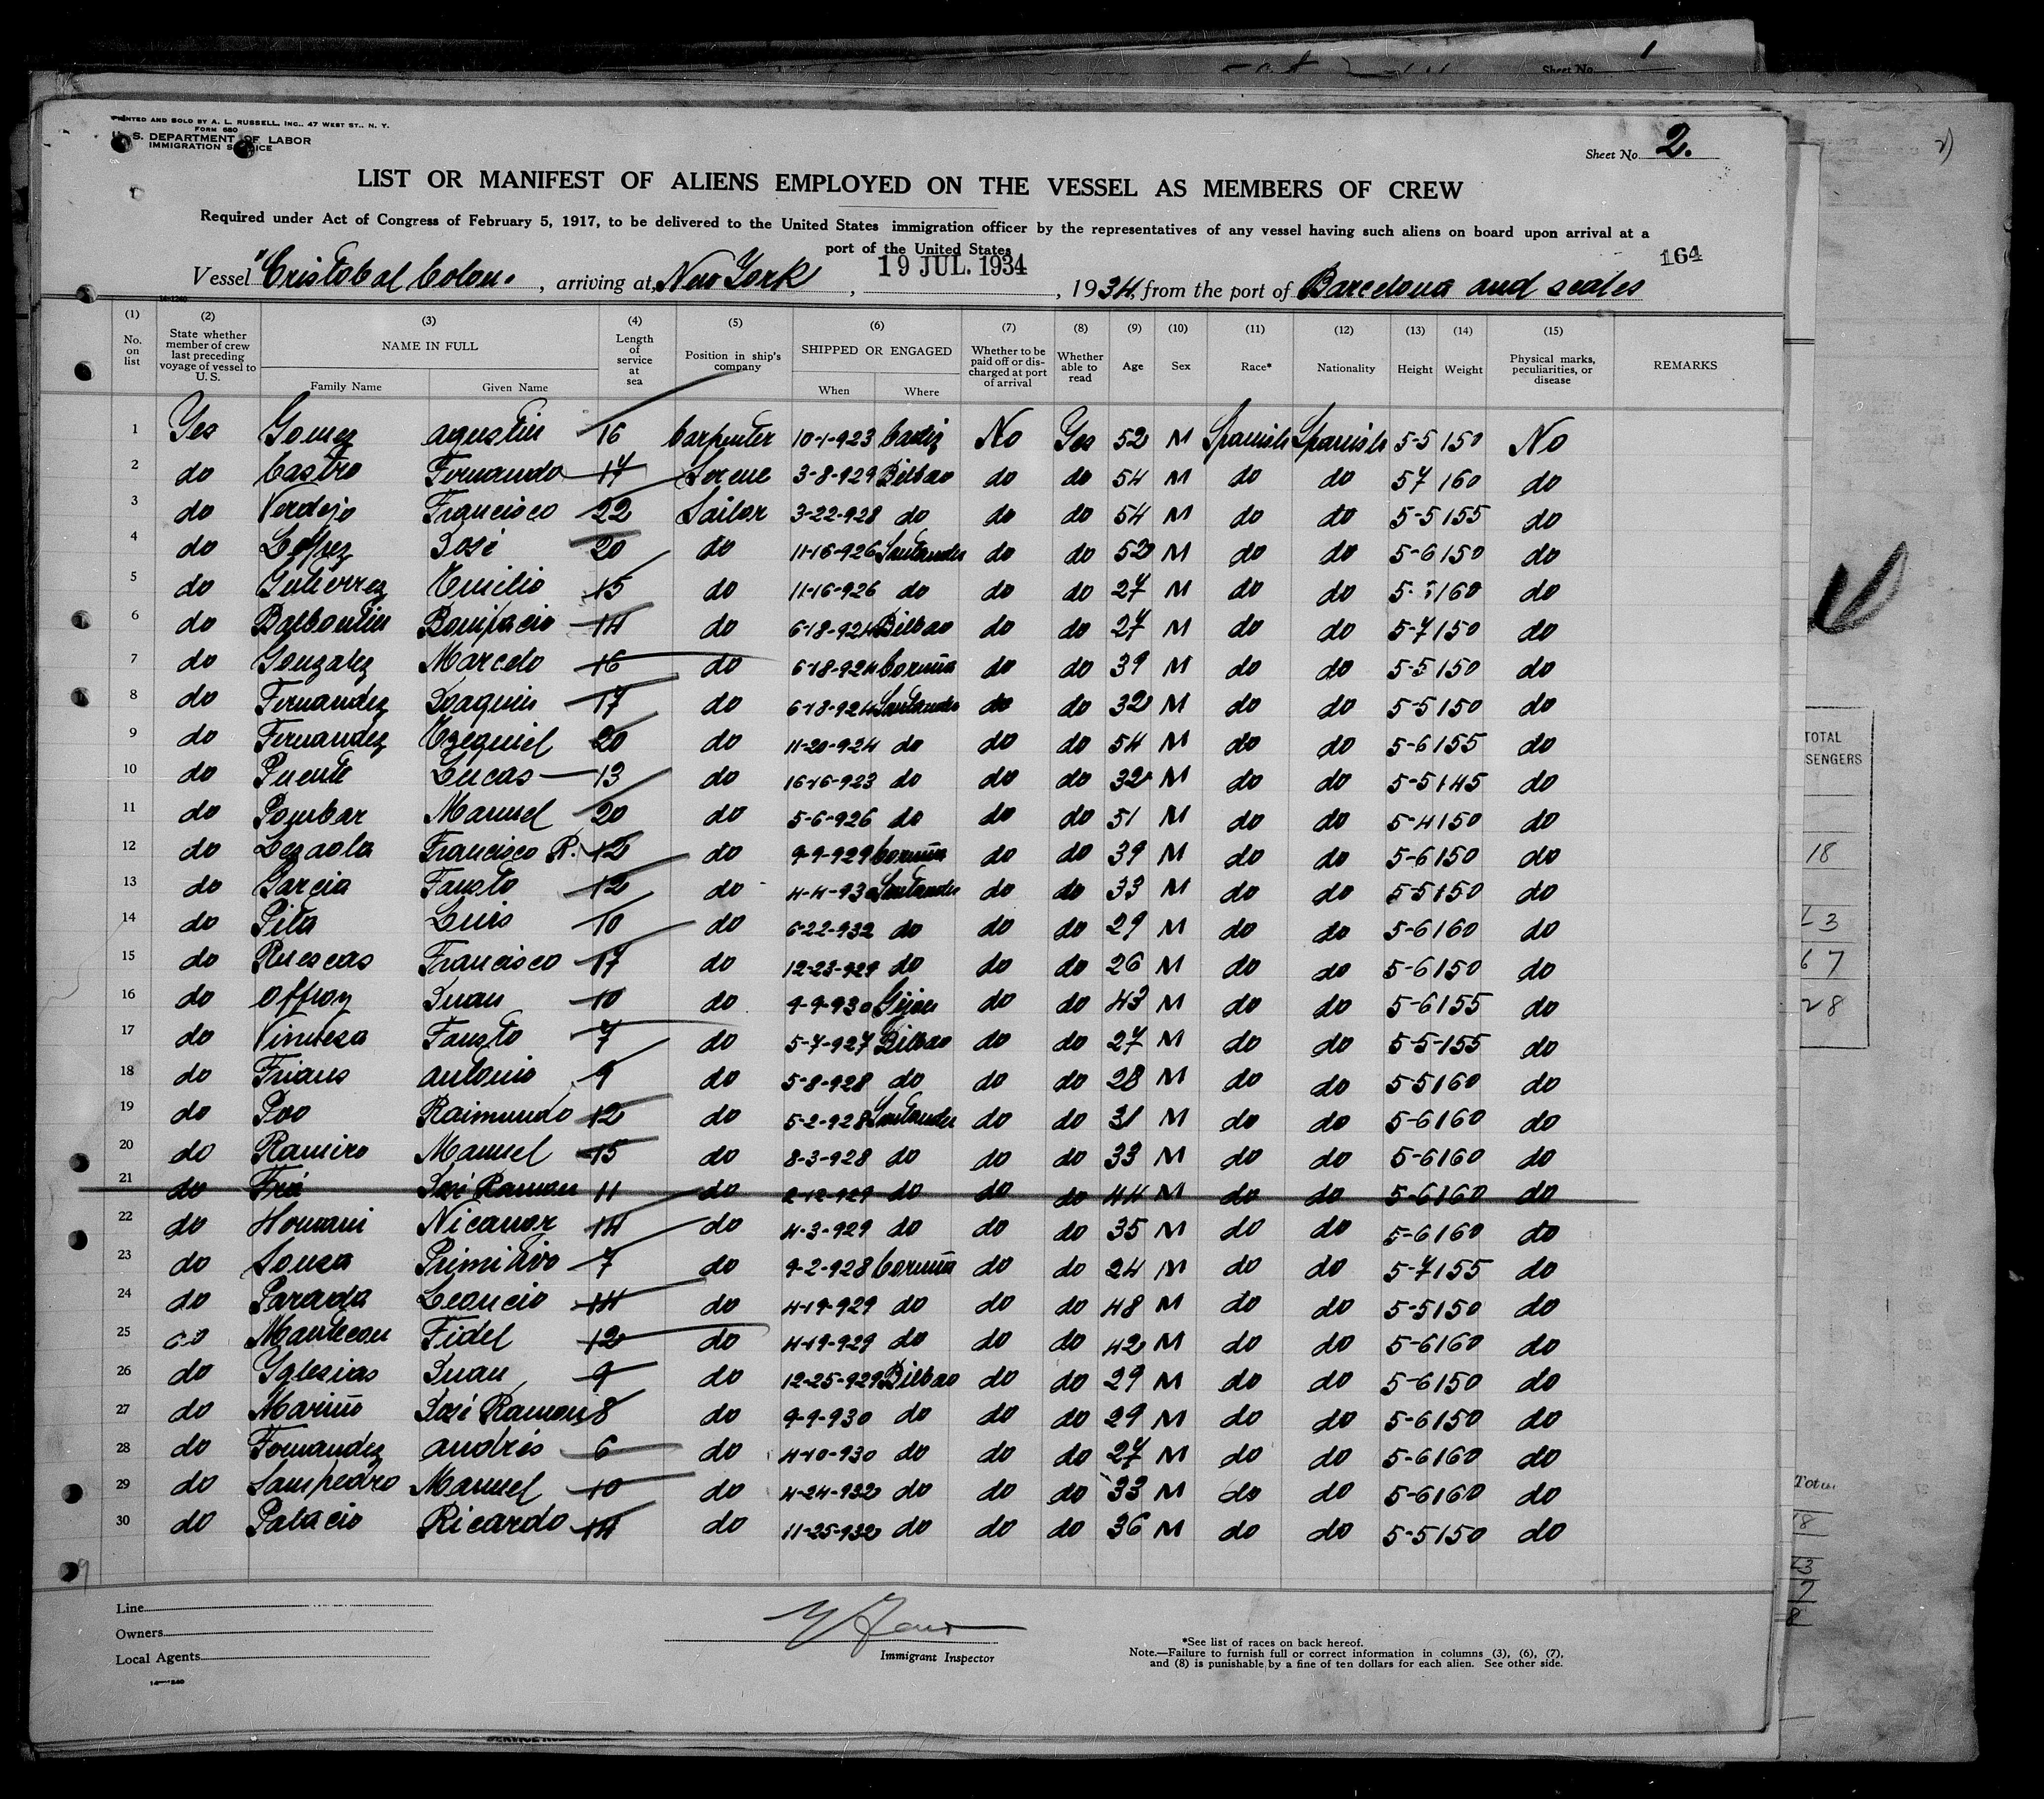 Sheet No. 1
PRINTED AND SOLD BY A. L. RUSSELL, INC., 47 WEST ST., N. Y.
FORM 680
U. S. DEPARTMENT OF LABOR
IMMIGRATION SERVICE
Sheet No. 2.
LIST OR MANIFEST OF ALIENS EMPLOYED ON THE VESSEL AS MEMBERS OF CREW
Required under Act of Congress of February 5, 1917, to be delivered to the United States immigration officer by the representatives of any vessel having such aliens on board upon arrival at a
port of the United States
164
19 JUL. 1934
Vessel "Cristobal Colon", arriving at New York, 1934, from the port of Barcelona and scales
(1) No. on list (2) State whether member of crew last preceding voyage of vessel to U. S. (3) NAME IN FULL Family Name Given Name (4) Length of service at sea (5) Position in ship's company (6) SHIPPED OR ENGAGED When Where (7) Whether to be paid off or discharged at port of arrival (8) Whether able to read (9) Age (10) Sex (11) Race* (12) Nationality (13) Height (14) Weight (15) Physical marks, peculiarities, or disease REMARKS
1 Yes Gomez Agustin 16 Carpenter 10-1-923 Cadiz No Yes 52 M Spanish Spanish 5-5 150 No
2 do Castro Fernando 17 3-8-929 Bilbao do do 54 M do do 57 160 do
3 do Verdejo Francisco 22 Sailor 3-22-928 do do do 54 M do do 5-5 155 do
4 do Lopez José 20 do 11-16-926 Santander do do 52 M do do 5-6 150 do
5 do Gutierrez Emilio 15 do 11-16-926 do do do 27 M do do 160 do
6 do Balbontin Bonifacio 14 do 6-18-924 Bilbao do do 27 M do do 5-7 150 do
7 do Gonzalez Marcelo 16 do 6-18-924 Coruña do do 39 M do do 5-5 150 do
8 do Fernandez Joaquin 17 do 6-18-924 Santander do do 32 M do do 5-5 150 do
9 do Fernandez Ezequiel 20 do 11-20-924 do do do 54 M do do 5-6 155 do
10 do Puente Lucas 13 do 16-16-923 do do do 32 M do do 5-5 145 do
11 do Pombar Manuel 20 do 5-6-926 do do do 51 M do do 5-4 150 do
12 do Lezaola Francisco P. 12 do 9-9-929 Coruña do do 39 M do do 5-6 150 do
13 do Garcia Fausto 12 do 4-4-930 Santander do do 33 M do do 5-5 150 do
14 do Pita Luis 10 do 6-22-932 do do do 29 M do do 5-6 160 do
15 do Ruescas Francisco 17 do 12-23-929 do do do 26 M do do 5-6 150 do
16 do Offroy Juan 10 do 9-9-930 Gijon do do 43 M do do 5-6 155 do
17 do Fausto 7 do 5-7-927 Bilbao do do 27 M do do 5-5-155 do
18 do Frians Antonio 9 do 5-8-928 do do do 28 M do do 5-5 160 do
19 do Poo Raimundo 12 do 5-2-928 Santander do do 31 M do do 5-6 160 do
20 do Ramiro Manuel 15 do 8-3-928 do do do 33 M do do 5-6 160 do
21 do José Ramon 11 do 2-12-929 do do do 44 M do do 5-6 160 do
22 do Nicanor 14 do 4-3-929 do do do 35 M do do 5-6 160 do
23 do Sousa Primitivo 7 do 9-2-928 Coruña do do 24 M do do 5-7 155 do
24 do Parada Leoncio 14 do 4-19-929 do do do 48 M do do 5-5 150 do
25 do Mantecon Fidel 12 do 4-19-929 do do do 42 M do do 5-6 160 do
26 do Yglesias Juan 9 do 12-25-929 Bilbao do do 29 M do do 5-6 150 do
27 do Mariño José Ramon 8 do 9-9-930 do do do 29 M do do 5-6 150 do
28 do Fernandez Andrés 6 do 4-10-930 do do do 27 M do do 5-6 160 do
29 do Sampedro Manuel 10 do 4-24-932 do do do 33 M do do 5-6 160 do
30 do Palacio Ricardo 14 do 11-25-932 do do do 36 M do do 5-5 150 do
TOTAL
SENGERS
18
3
67
28
Total
18
3
7
8
Line
Owners
Local Agents
Immigrant Inspector
*See list of races on back hereof.
Note.—Failure to furnish full or correct information in columns (3), (6), (7),
and (8) is punishable by a fine of ten dollars for each alien. See other side.